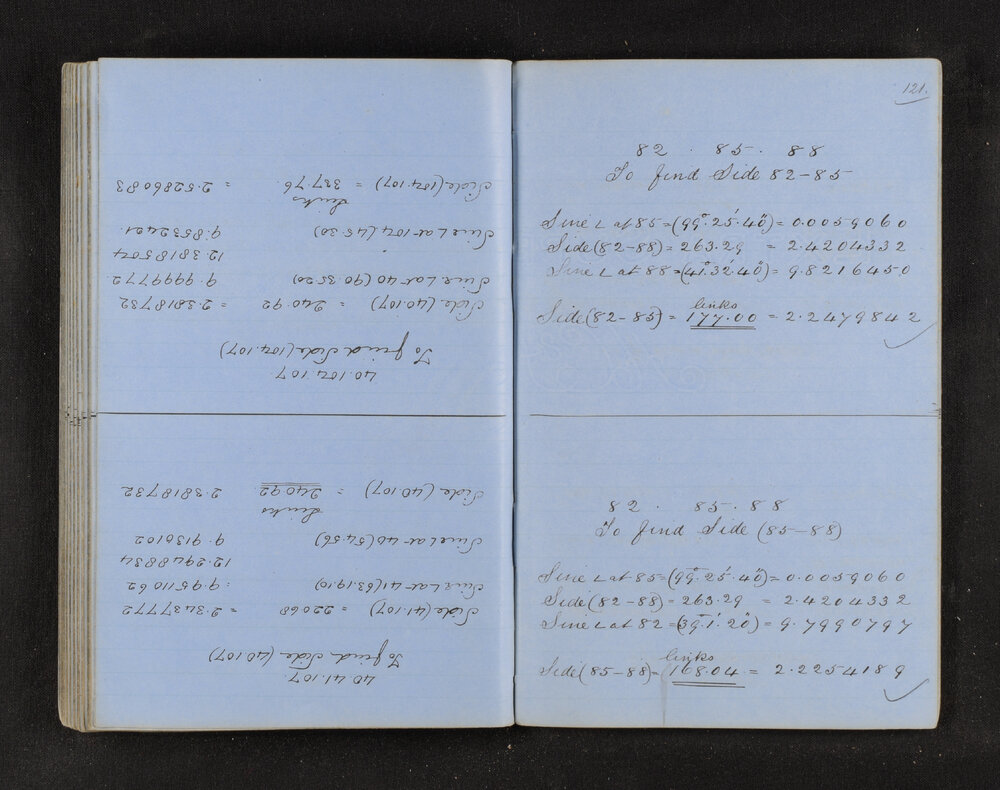 40.41.107
To find Side (40.107)
Side (41.107) = 220.68 = 2.3437772
Sine ∠ at 41 (63.19.10) 9.9511062
12.2948834
Sine ∠ at 40 (54.56) 9.9130102
links
Side (40.107) = 240.92 2.3818732
40.104.107
To find Side (104.107)
Side (40.107) = 240.92 = 2.3818732
Sine ∠ at 40 (90 35 20) 9.9999772
12.3818504
Sine ∠ at 104 (45.30) 9.8532421
links
Side (104.107) = 337.76 = 2.5286083
121.
82 . 85 . 88
To find Side 82-85
Sine ∠ at 85 = (99°.25'.40") = 0.0059060
Side (82-88) = 263.29 = 2.4204332
Sine ∠ at 88 = (41°.32'.40") = 9.8216450
links
Side (82-85) = 177.00 = 2.2479842
82 . 85 . 88
To find Side (85-88)
Sine ∠ at 85 = (99°.25'.40") = 0.0059060
Side (82-88) = 263.29 = 2.4204332
Sine ∠ at 82 = (39°.1'.20") = 9.7990797
links
Side (85-88) = 168.04 = 2.2254189